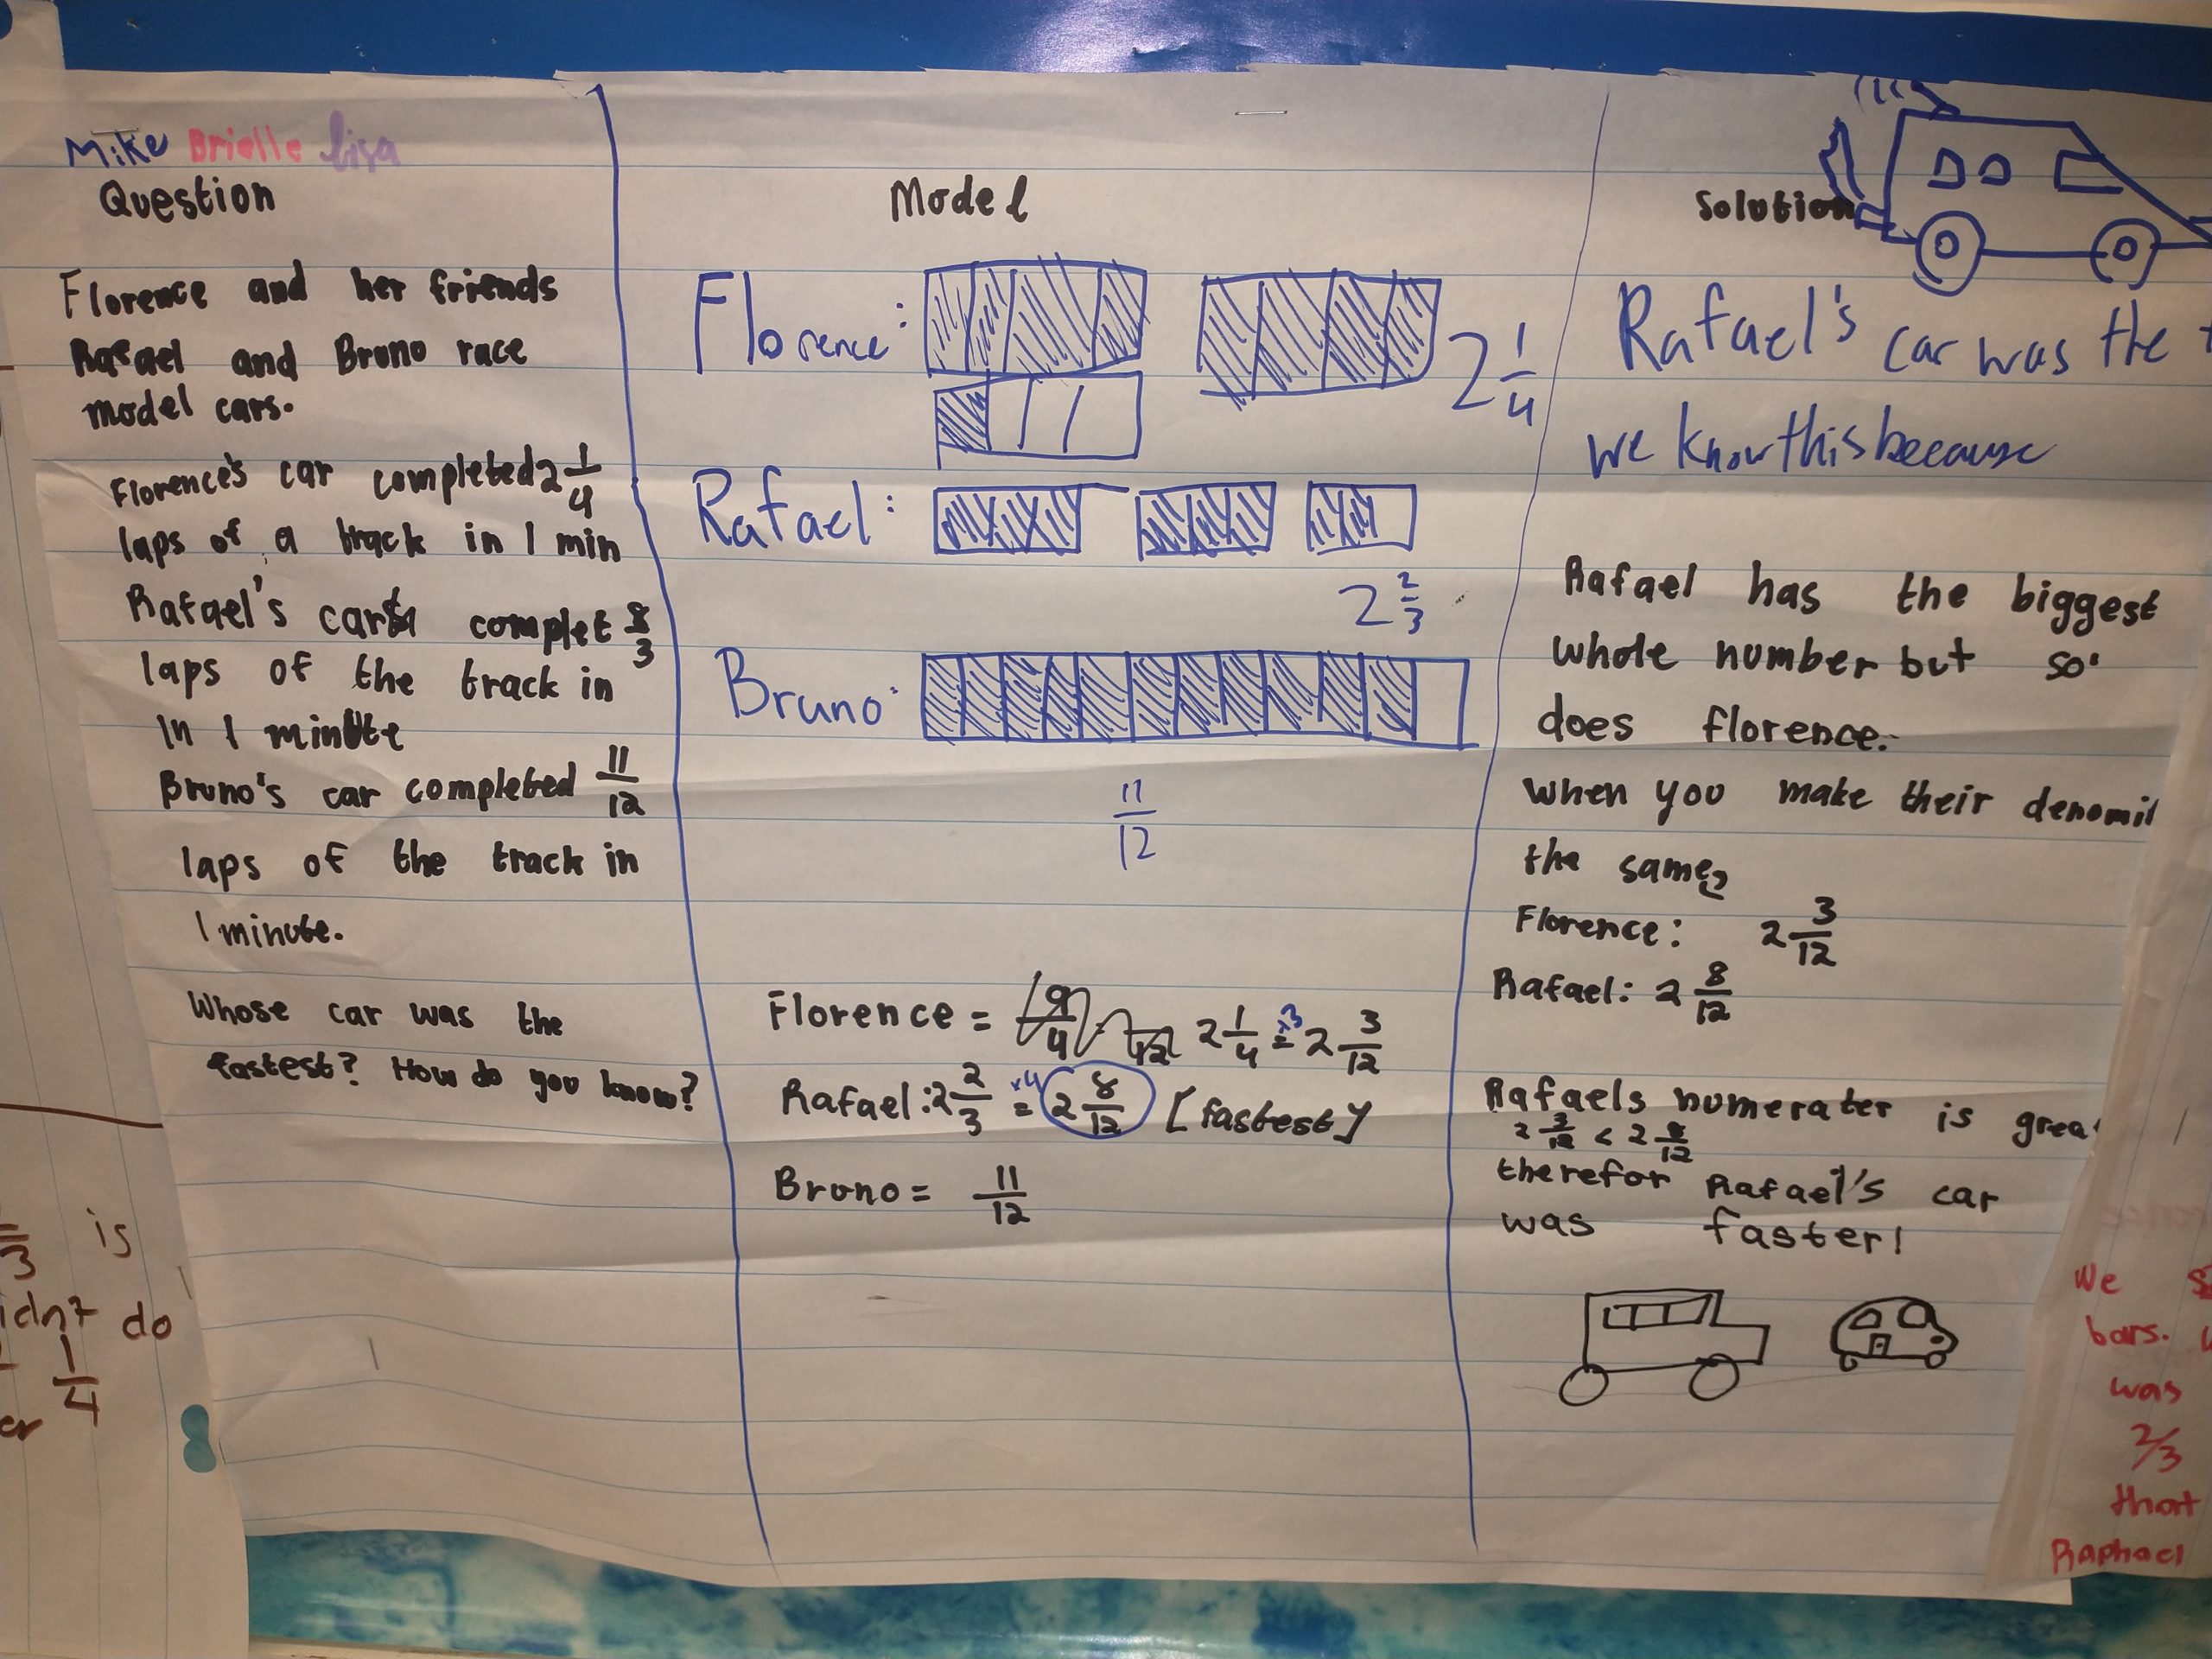 Mike Brielle lisa
Question
Florence and her friends
Rafael and Bruno race
model cars.
Florence's car completed 2 1/4
laps of a track in 1 min
Rafael's car complet 8/3
laps of the track in
in 1 minute
Bruno's car completed 11/12
laps of the track in
1 minute.
Whose car was the
fastest? How do you know?
Model
Florence:
2 1/4
Rafael:
2 2/3
Bruno:
11/12
Florence = 9/4 2 1/4 x3 = 2 3/12
Rafael: 2 2/3 x4 = 2 8/12 [fastest]
Bruno = 11/12
Solution
Rafael's car was the
we know this because
Rafael has the biggest
whole number but so
does florence.
when you make their denomi
the same,
Florence: 2 3/12
Rafael: 2 8/12
Rafaels numerater is grea
2 3/12 < 2 8/12
therefor Rafael's car
was faster!
3 is
idn't do
1/4
er
We
bars.
was
2/3
that
Raphael